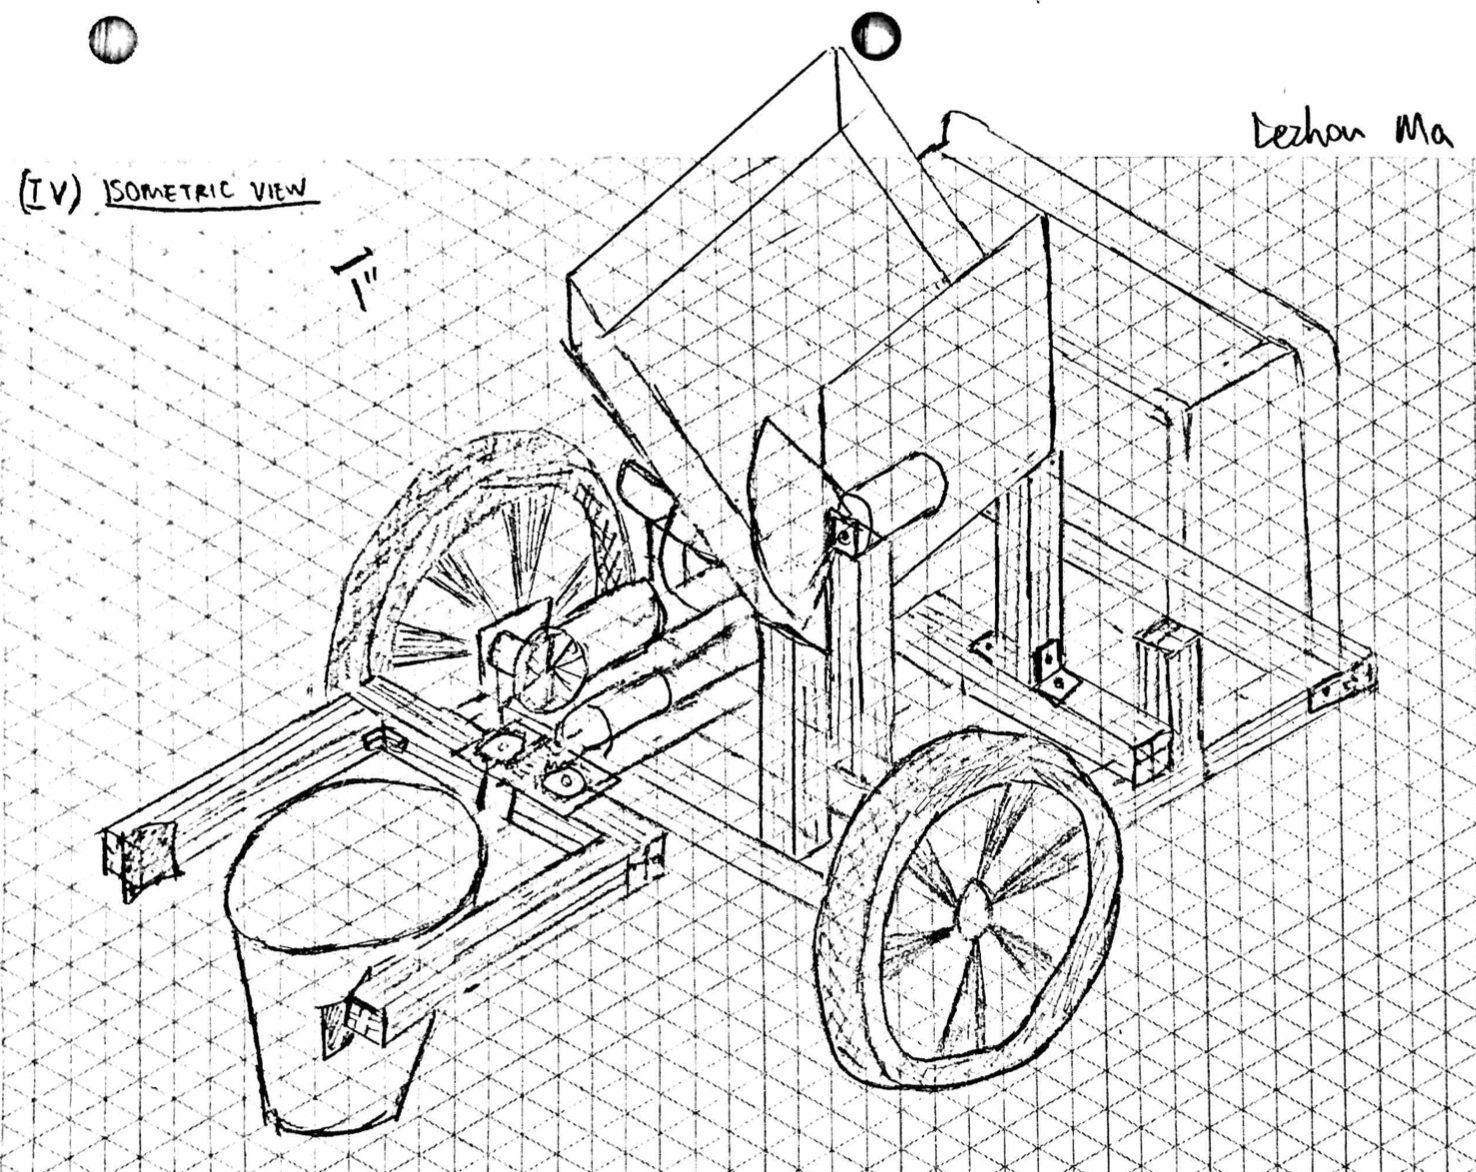 Dezhou Ma
(IV) ISOMETRIC VIEW
1"